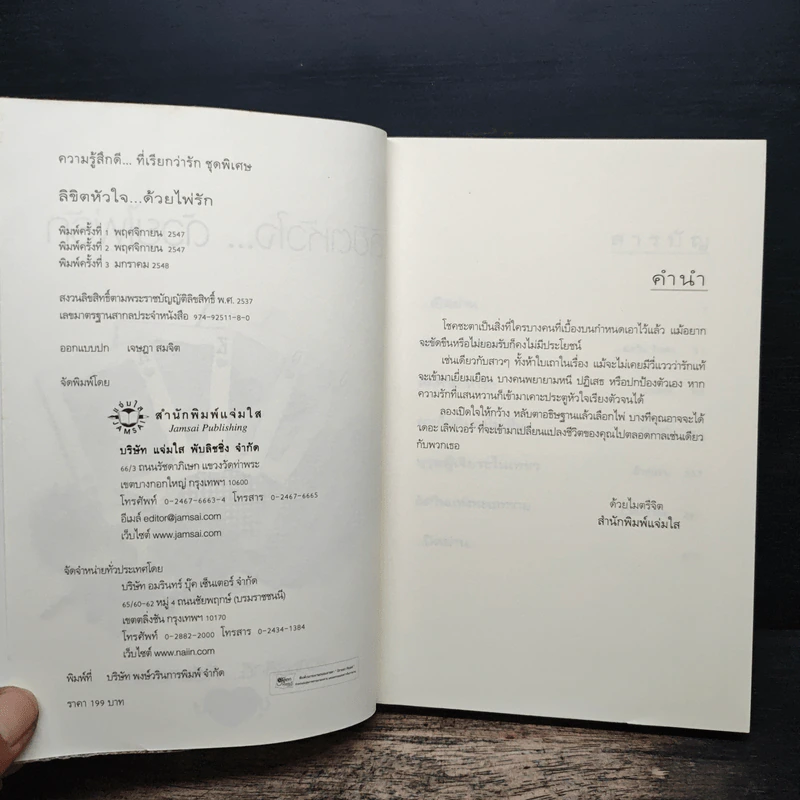 ความรู้สึกดี... ที่เรียกว่ารัก ชุดพิเศษ
ลิขิตหัวใจ...ด้วยไพ่รัก
พิมพ์ครั้งที่ 1 พฤศจิกายน 2547
พิมพ์ครั้งที่ 2 พฤศจิกายน 2547
พิมพ์ครั้งที่ 3 มกราคม 2548
สงวนลิขสิทธิ์ตามพระราชบัญญัติลิขสิทธิ์ พ.ศ. 2537
เลขมาตรฐานสากลประจำหนังสือ 974-92511-8-0
ออกแบบปก เจษฎา สมจิต
จัดพิมพ์โดย
สำนักพิมพ์แจ่มใส
Jamsai Publishing
บริษัท แจ่มใส พับลิชชิ่ง จำกัด
66/3 ถนนรัชดาภิเษก แขวงวัดท่าพระ
เขตบางกอกใหญ่ กรุงเทพฯ 10600
โทรศัพท์ 0-2467-6663-4 โทรสาร 0-2467-6665
อีเมล์ editor@jamsai.com
เว็บไซต์ www.jamsai.com
จัดจำหน่ายทั่วประเทศโดย
บริษัท อมรินทร์ บุ๊ค เซ็นเตอร์ จำกัด
65/60-62 หมู่ 4 ถนนชัยพฤกษ์ (บรมราชชนนี)
เขตตลิ่งชัน กรุงเทพฯ 10170
โทรศัพท์ 0-2882-2000 โทรสาร 0-2434-1384
เว็บไซต์ www.naiin.com
พิมพ์ที่ บริษัท พงษ์วรินการพิมพ์ จำกัด
ราคา 199 บาท
คำนำ
โชคชะตาเป็นสิ่งที่ใครบางคนที่เบื้องบนกำหนดเอาไว้แล้ว แม้อยาก
จะขัดขืนหรือไม่ยอมรับก็คงไม่มีประโยชน์
เช่นเดียวกับสาวๆ ทั้งห้าใบเถาในเรื่อง แม้จะไม่เคยมีวี่แววว่ารักแท้
จะเข้ามาเยี่ยมเยือน บางคนพยายามหนี ปฏิเสธ หรือปกป้องตัวเอง หาก
ความรักที่แสนหวานก็เข้ามาเคาะประตูหัวใจเรียงตัวจนได้
ลองเปิดใจให้กว้าง หลับตาอธิษฐานแล้วเลือกไพ่ บางทีคุณอาจจะได้
เดอะ เลิฟเวอร์ ที่จะเข้ามาเปลี่ยนแปลงชีวิตของคุณไปตลอดกาลเช่นเดียว
กับพวกเธอ
ด้วยไมตรีจิต
สำนักพิมพ์แจ่มใส